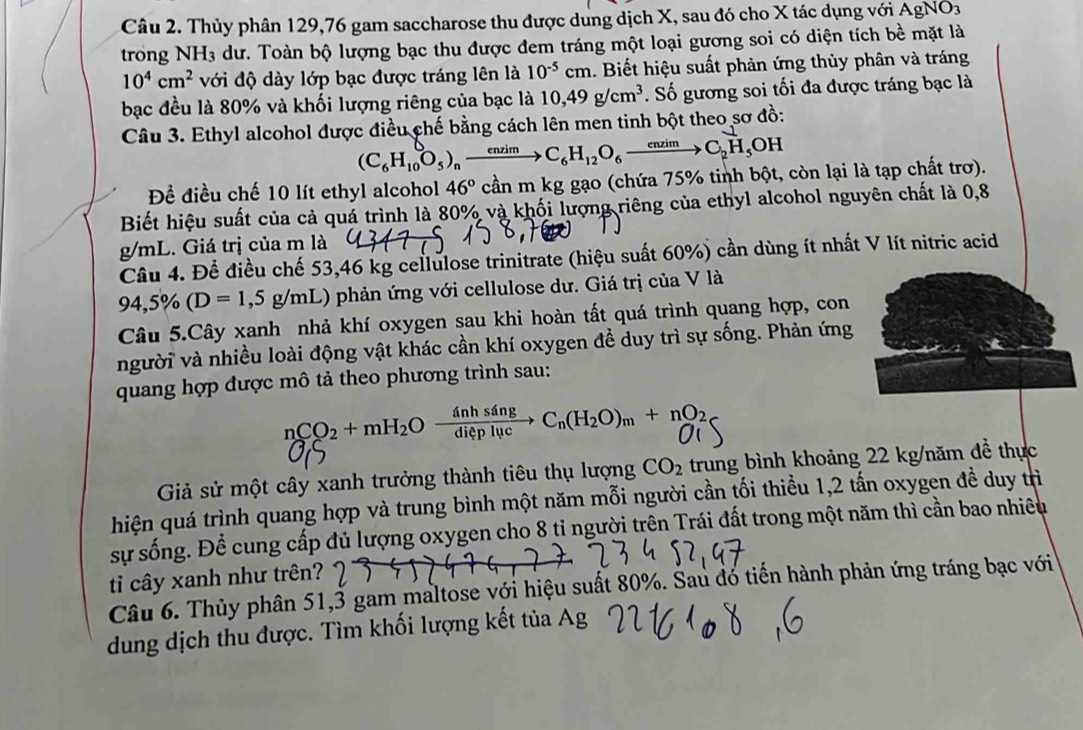 Câu 2. Thủy phân 129,76 gam saccharose thu được dung dịch X, sau đó cho X tác dụng với AgNO₃
trong NH₃ dư. Toàn bộ lượng bạc thu được đem tráng một loại gương soi có diện tích bề mặt là
10⁴ cm² với độ dày lớp bạc được tráng lên là 10⁻⁵ cm. Biết hiệu suất phản ứng thủy phân và tráng
bạc đều là 80% và khối lượng riêng của bạc là 10,49 g/cm³. Số gương soi tối đa được tráng bạc là
Câu 3. Ethyl alcohol được điều chế bằng cách lên men tinh bột theo sơ đồ:
(C₆H₁₀O₅)ₙ —enzim→ C₆H₁₂O₆ —enzim→ C₂H₅OH
Để điều chế 10 lít ethyl alcohol 46⁰ cần m kg gạo (chứa 75% tinh bột, còn lại là tạp chất trơ).
Biết hiệu suất của cả quá trình là 80% và khối lượng riêng của ethyl alcohol nguyên chất là 0,8
g/mL. Giá trị của m là 4347,5
Câu 4. Để điều chế 53,46 kg cellulose trinitrate (hiệu suất 60%) cần dùng ít nhất V lít nitric acid
94,5% (D = 1,5 g/mL) phản ứng với cellulose dư. Giá trị của V là
Câu 5.Cây xanh nhả khí oxygen sau khi hoàn tất quá trình quang hợp, con
người và nhiều loài động vật khác cần khí oxygen để duy trì sự sống. Phản ứng
quang hợp được mô tả theo phương trình sau:
nCO₂ + mH₂O —ánh sáng/diệp lục→ Cₙ(H₂O)ₘ + nO₂
0,5 0,5
Giả sử một cây xanh trưởng thành tiêu thụ lượng CO₂ trung bình khoảng 22 kg/năm để thực
hiện quá trình quang hợp và trung bình một năm mỗi người cần tối thiểu 1,2 tấn oxygen để duy trì
sự sống. Để cung cấp đủ lượng oxygen cho 8 tỉ người trên Trái đất trong một năm thì cần bao nhiêu
tỉ cây xanh như trên? 23452,47
Câu 6. Thủy phân 51,3 gam maltose với hiệu suất 80%. Sau đó tiến hành phản ứng tráng bạc với
dung dịch thu được. Tìm khối lượng kết tủa Ag